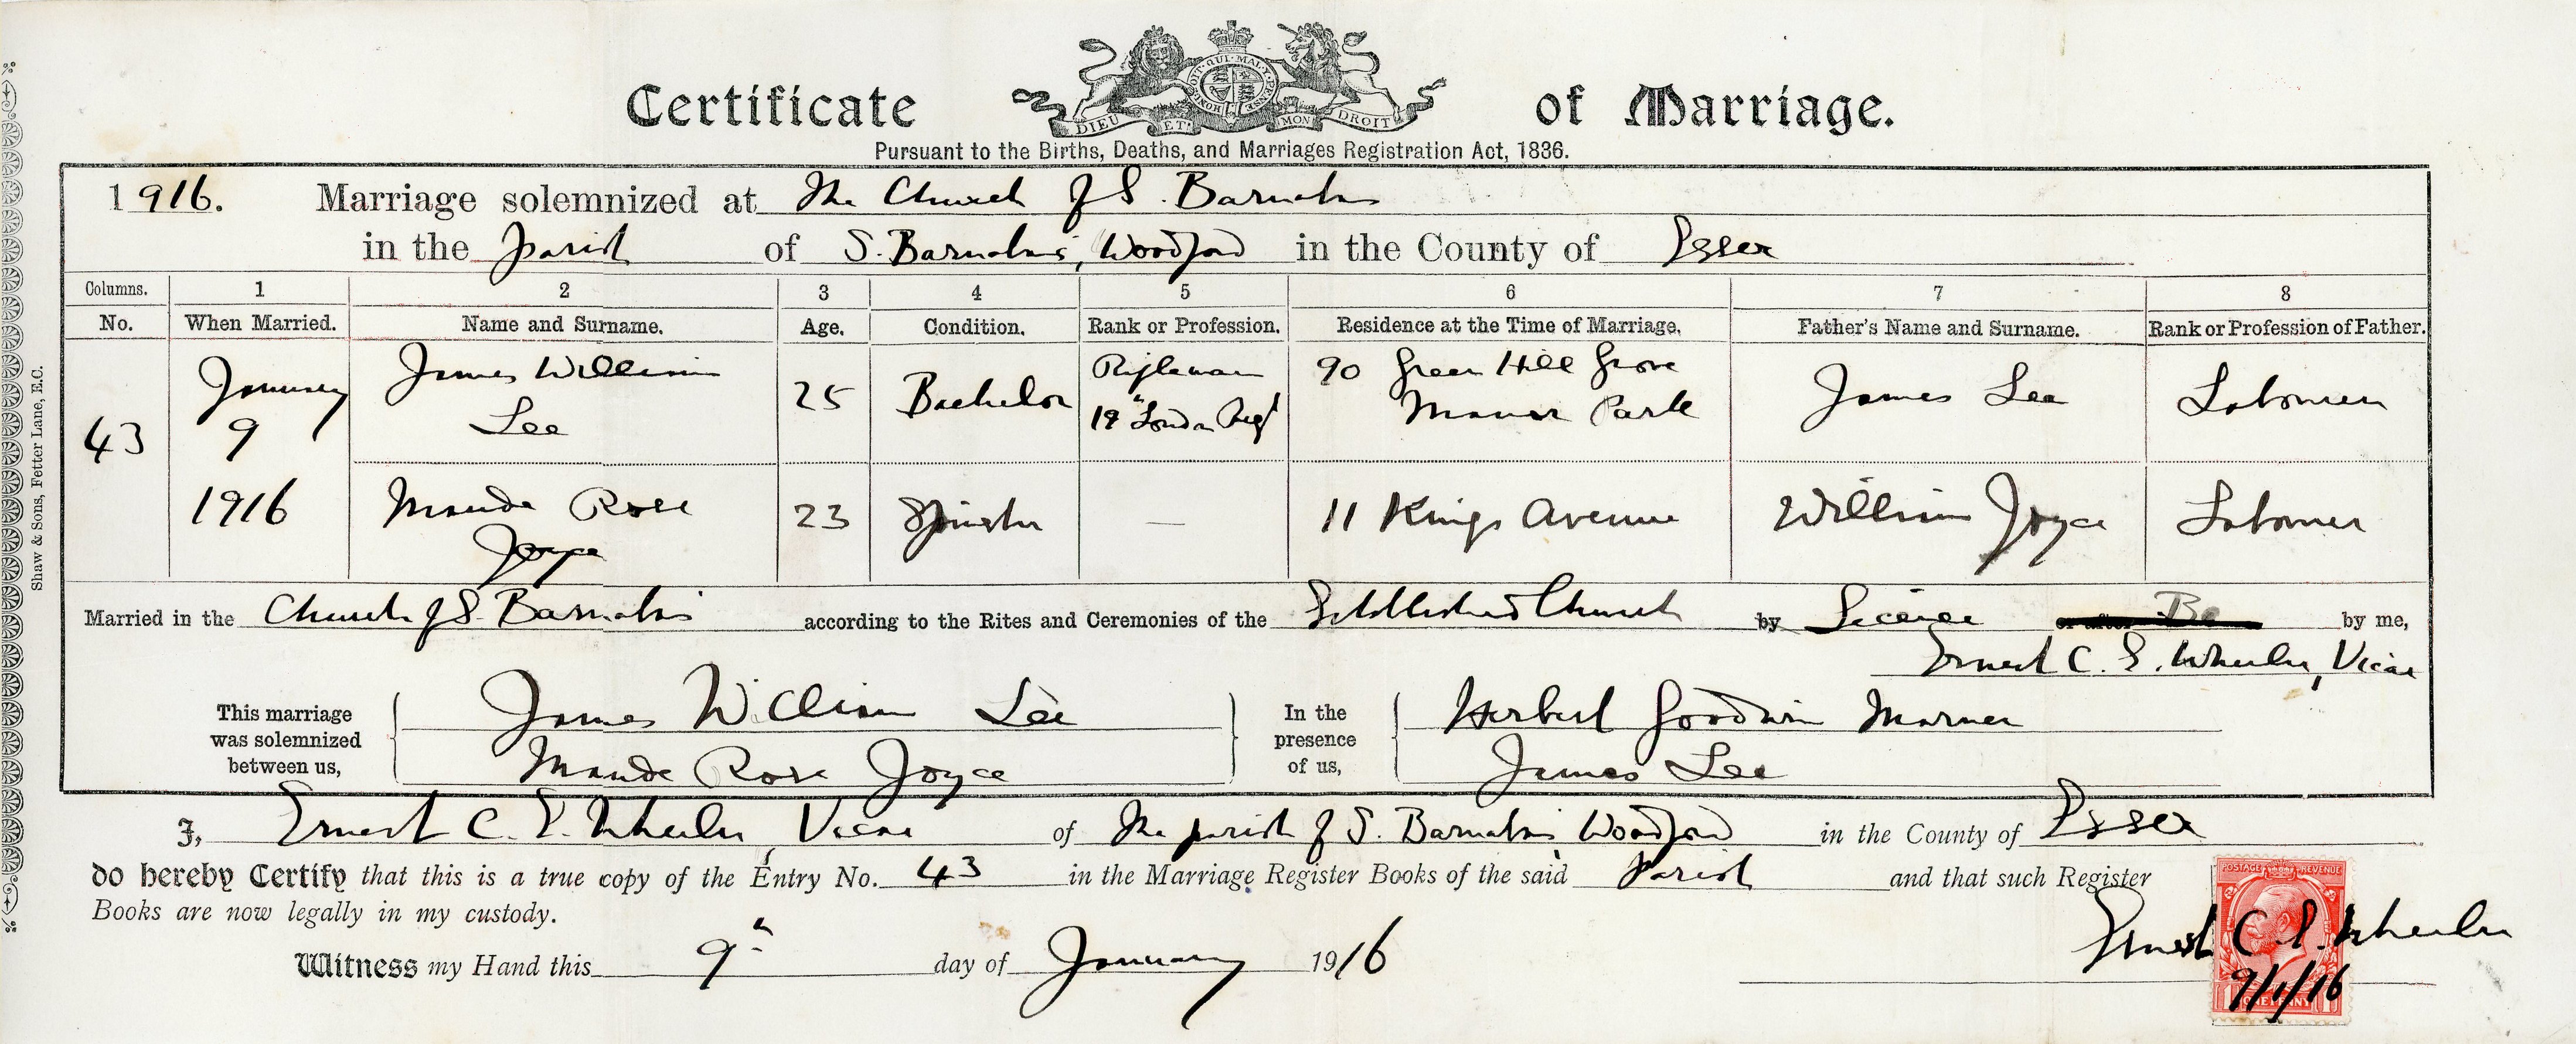 Certificate of Marriage.
HONI SOIT QUI MAL Y PENSE
DIEU ET MON DROIT
Pursuant to the Births, Deaths, and Marriages Registration Act, 1836.
1916. Marriage solemnized at The Church of S. Barnabas
in the parish of S. Barnabas, Woodford in the County of Essex
Columns. 1 2 3 4 5 6 7 8
No. When Married. Name and Surname. Age. Condition. Rank or Profession. Residence at the Time of Marriage. Father's Name and Surname. Rank or Profession of Father.
43 January 9 1916
James William Lee 25 Bachelor Rifleman 19th London Regt 90 Green Hill Grove Manor Park James Lee Labourer
Maude Rose Joyce 23 Spinster — 11 Kings Avenue William Joyce Labourer
Married in the Church of S. Barnabas according to the Rites and Ceremonies of the Established Church by Licence by me,
Ernest C. E. Wheeler, Vicar
This marriage was solemnized between us,
James William Lee
Maude Rose Joyce
In the presence of us,
Herbert Goodwin Marner
James Lee
I, Ernest C. E. Wheeler, Vicar of The parish of S. Barnabas, Woodford in the County of Essex
do hereby Certify that this is a true copy of the Entry No. 43 in the Marriage Register Books of the said Parish and that such Register
Books are now legally in my custody.
Witness my Hand this 9th day of January 1916
Ernest C. E. Wheeler
9/1/16
POSTAGE REVENUE
ONE PENNY
Shaw & Sons, Fetter Lane, E.C.